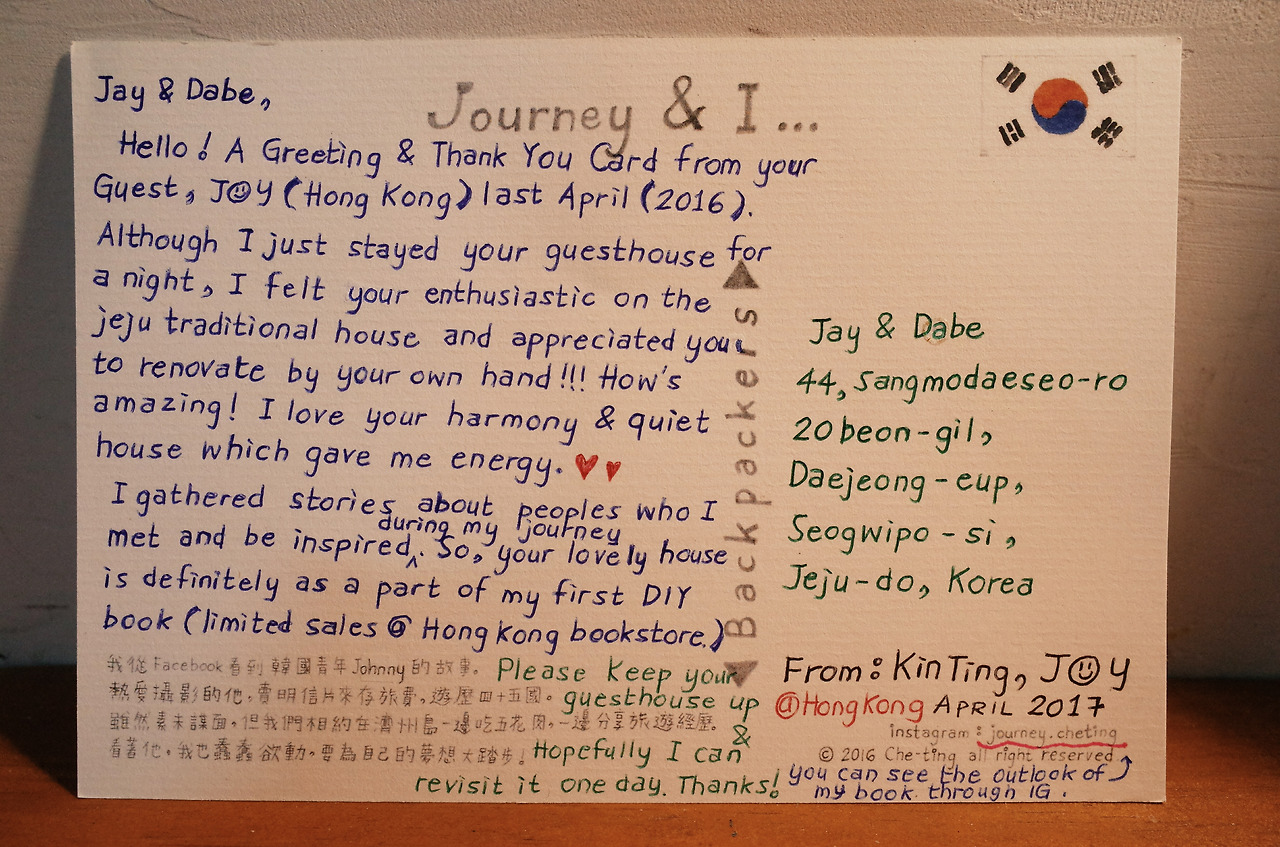 Journey & I...
Jay & Dabe,
Hello! A Greeting & Thank You Card from your
Guest, JOY (Hong Kong) last April (2016).
Although I just stayed your guesthouse for
a night, I felt your enthusiastic on the
jeju traditional house and appreciated your
to renovate by your own hand!!! How's
amazing! I love your harmony & quiet
house which gave me energy. ♥♥
I gathered stories about peoples who I
during my journey
met and be inspired. So, your lovely house
is definitely as a part of my first DIY
book (limited sales @ Hong kong bookstore.)
我從Facebook看到韓國青年Johnny的故事。
熱愛攝影的他,賣明信片來存旅費,遊歷四十五國。
雖然素未謀面,但我們相約在濟州島一邊吃五花肉,一邊分享旅遊經歷。
看著他,我也蠢蠢欲動,要為自己的夢想大踏步!
Please Keep your
guesthouse up
&
Hopefully I can
revisit it one day. Thanks!
Backpackers
Jay & Dabe
44, Sangmodaeseo-ro
20 beon-gil,
Daejeong-eup,
Seogwipo-si,
Jeju-do, Korea
From: KinTing, JOY
@HongKong APRIL 2017
instagram: journey.cheting
© 2016 Che-ting all right reserved
you can see the outlook of
my book through IG.